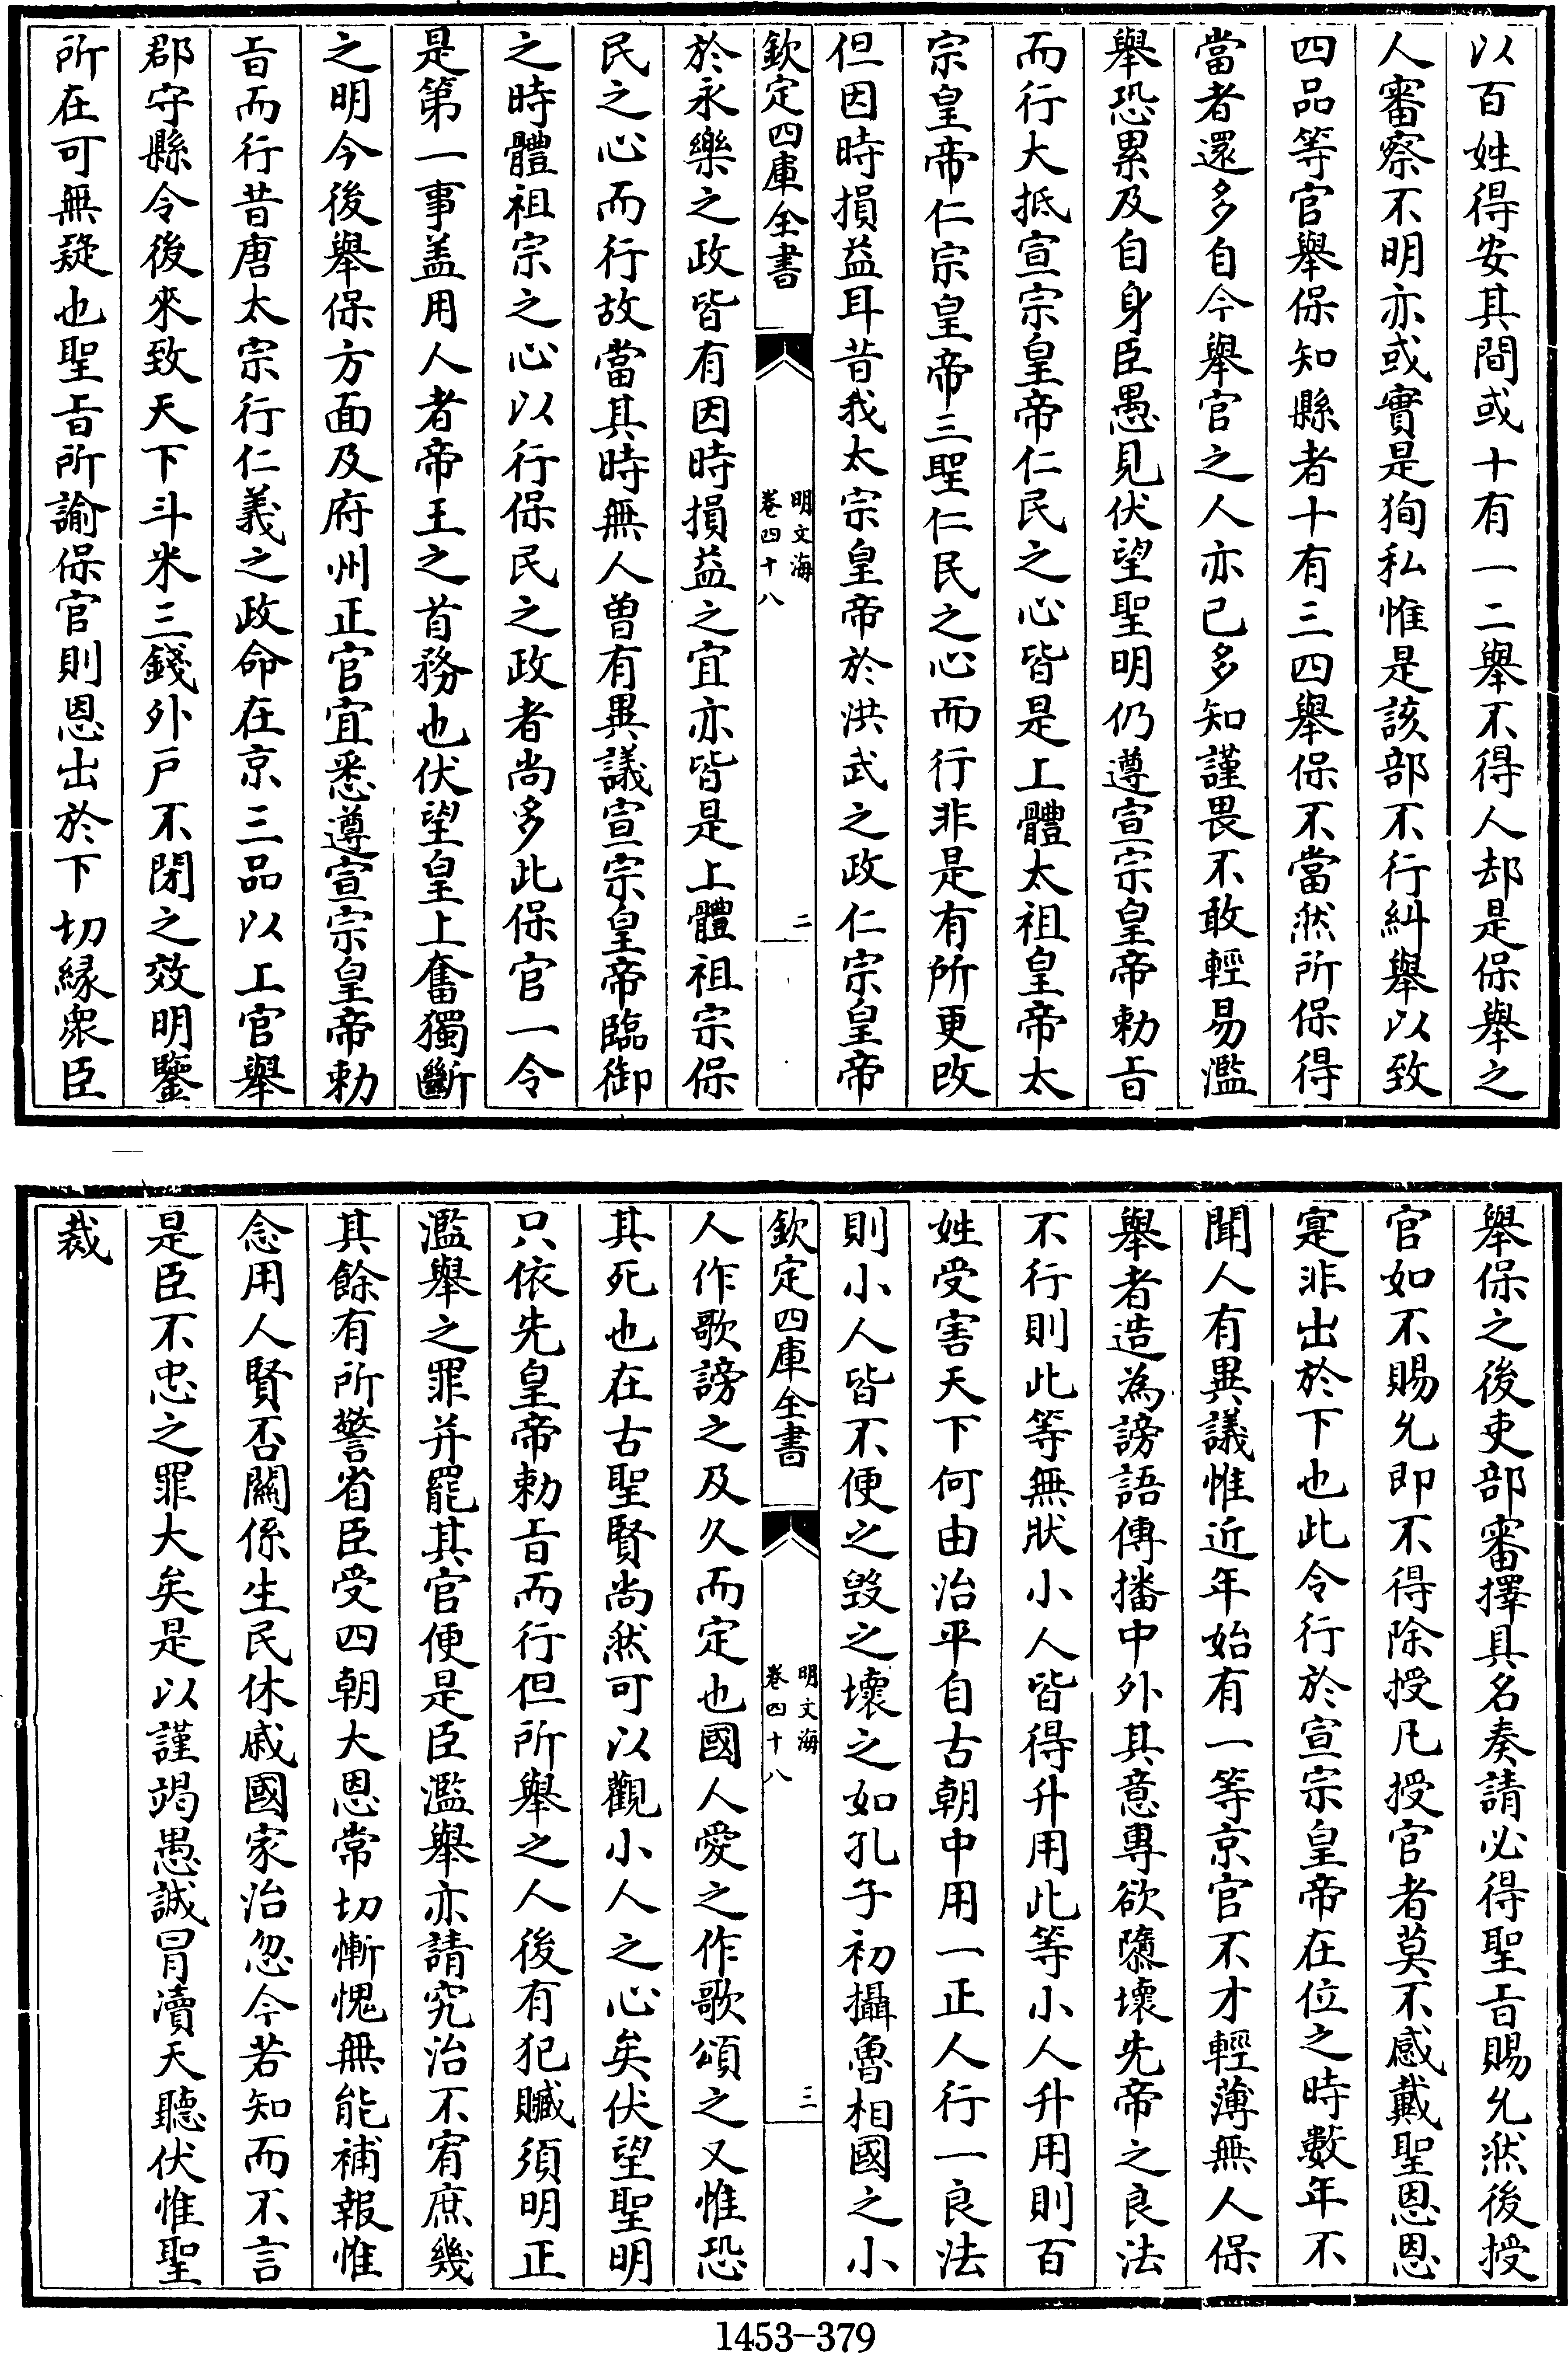 以百姓得安其間或十有一二舉不得人却是保舉之
人審察不明亦或實是狥私惟是該部不行糾舉以致
四品等官舉保知縣者十有三四舉保不當然所保得
當者還多自今舉官之人亦已多知謹畏不敢輕易濫
舉恐累及自身臣愚見伏望聖明仍遵宣宗皇帝勅㫖
而行大抵宣宗皇帝仁民之心皆是上體太祖皇帝太
宗皇帝仁宗皇帝三聖仁民之心而行非是有所更改
但因時損益耳昔我太宗皇帝於洪武之政仁宗皇帝
欽定四庫全書
明文海
卷四十八
二
於永樂之政皆有因時損益之宜亦皆是上體祖宗保
民之心而行故當其時無人曽有異議宣宗皇帝臨御
之時體祖宗之心以行保民之政者尚多此保官一令
是第一事盖用人者帝王之首務也伏望皇上奮獨斷
之明今後舉保方面及府州正官宜悉遵宣宗皇帝勅
㫖而行昔唐太宗行仁義之政命在京三品以上官舉
郡守縣令後來致天下斗米三錢外戶不閉之效明鑒
所在可無疑也聖㫖所諭保官則恩出於下切縁衆臣
舉保之後吏部審擇具名奏請必得聖㫖賜允然後授
官如不賜允即不得除授凡授官者莫不感戴聖恩恩
寔非出於下也此令行於宣宗皇帝在位之時數年不
聞人有異議惟近年始有一等京官不才輕薄無人保
舉者造為謗語傳播中外其意專欲隳壞先帝之良法
不行則此等無狀小人皆得升用此等小人升用則百
姓受害天下何由治平自古朝中用一正人行一良法
則小人皆不便之毁之壞之如孔子初攝魯相國之小
欽定四庫全書
明文海
卷四十八
三
人作歌謗之及久而定也國人愛之作歌頌之又惟恐
其死也在古聖賢尚然可以觀小人之心矣伏望聖明
只依先皇帝勅㫖而行但所舉之人後有犯贓須明正
濫舉之罪并罷其官便是臣濫舉亦請究治不宥庶幾
其餘有所警省臣受四朝大恩常切慚愧無能補報惟
念用人賢否關係生民休戚國家治忽今若知而不言
是臣不忠之罪大矣是以謹竭愚誠冒瀆天聽伏惟聖
裁
1453-379